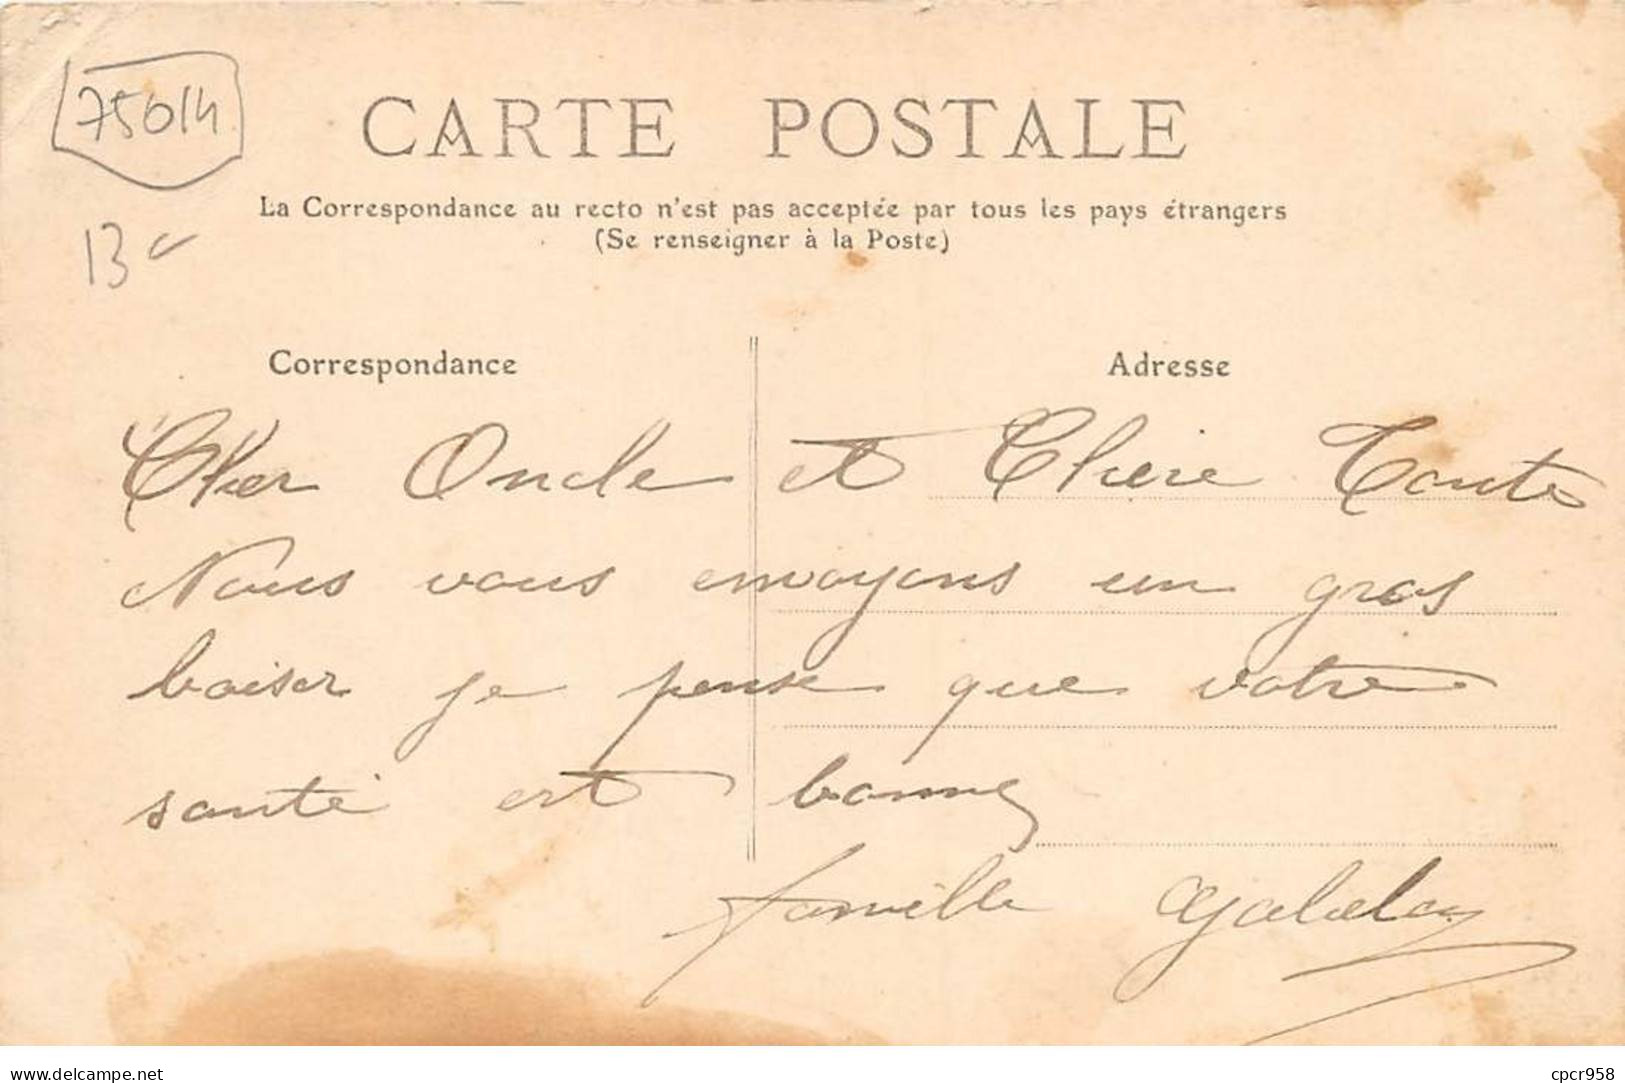 75014
CARTE POSTALE
La Correspondance au recto n'est pas acceptée par tous les pays étrangers
(Se renseigner à la Poste)
13
Correspondance
Adresse
Cher Oncle et Chère Tante
Nous vous envoyons un gros
baiser je pense que votre
santé est bonne
famille
delcampe.net
cpcr958